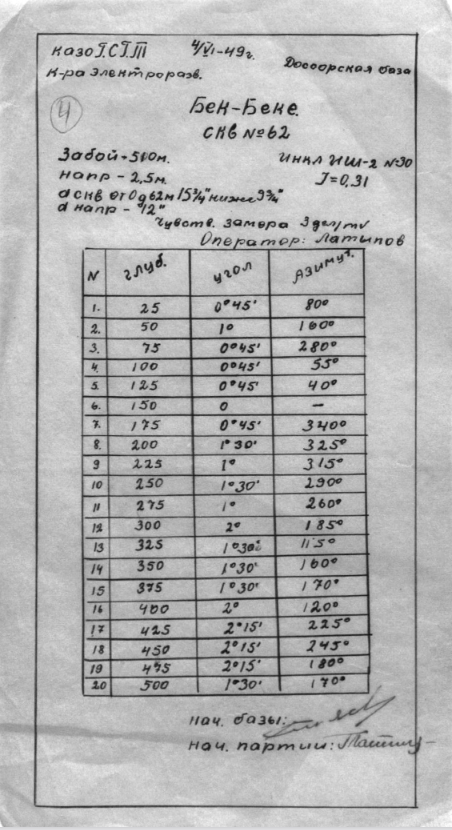 казо Г.С.Г.Т 4/VI-49г. Доссорская база
к-ра электроразв.
4
Бек-Беке.
скв № 62
Забой - 510м. инкл ИШ-2 №30
напр - 2,5м. J=0,31
d скв от 0 д 62м 15 3/4" ниже 9 3/4"
d напр - "12"
Чувств. замера 3 дел/mv
Оператор: Латыпов
N глуб. угол Азимут.
1. 25 0°45' 80°
2. 50 1° 160°
3. 75 0°45' 280°
4. 100 0°45' 55°
5. 125 0°45' 40°
6. 150 0 —
7. 175 0°45' 340°
8. 200 1°30' 325°
9 225 1° 315°
10 250 1°30' 290°
11 275 1° 260°
12 300 2° 185°
13 325 1°30' 115°
14 350 1°30' 160°
15 375 1°30' 170°
16 400 2° 120°
17 425 2°15' 225°
18 450 2°15' 245°
19 475 2°15' 180°
20 500 1°30' 170°
нач. базы:
нач. партии: